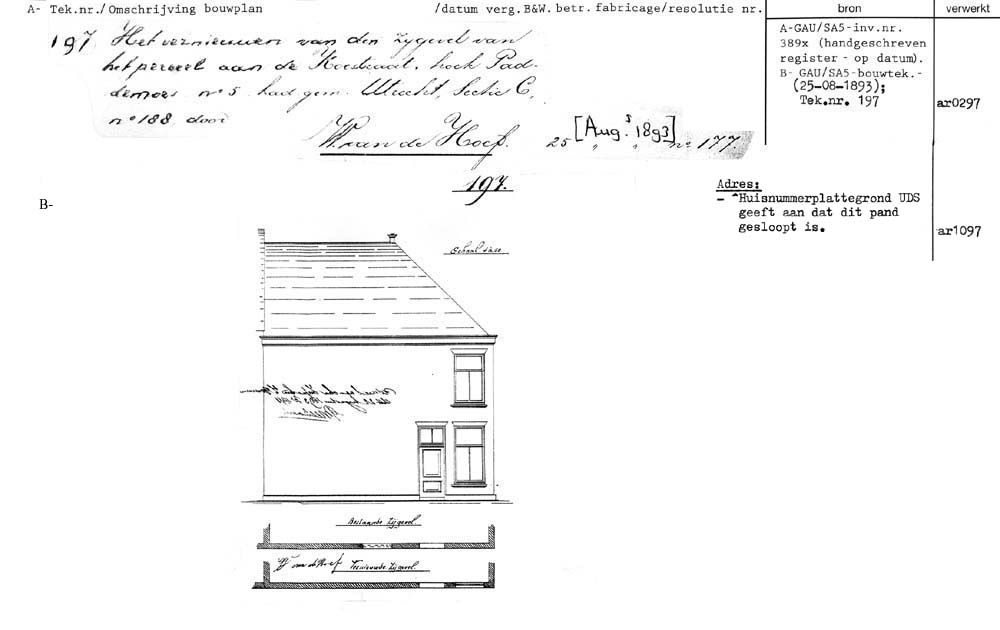 A- Tek.nr./Omschrijving bouwplan /datum verg.B&W. betr. fabricage/resolutie nr. bron verwerkt
197 Het vernieuwen van den zijgevel van
het perceel aan de Koestraat, hoek Pad-
demoes no 5. kad. gem. Utrecht, Sectie C,
no 188, door
W. van de Hoef. 25 [Aug.s 1893] " " no 177.
A-GAU/SA5-inv.nr.
389x (handgeschreven
register - op datum).
B- GAU/SA5-bouwtek.-
(25-08-1893);
Tek.nr. 197 ar0297
197.
B-
Adres:
- Huisnummerplattegrond UDS
geeft aan dat dit pand
gesloopt is. ar1097
Bestaande zijgevel
W van de Hoef Vernieuwde zijgevel.